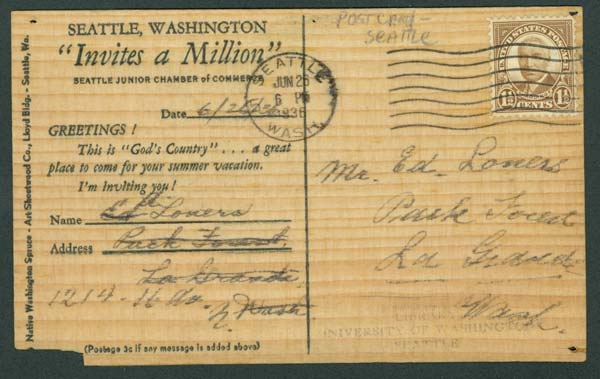 POSTCARD -
SEATTLE
SEATTLE, WASHINGTON
"Invites a Million"
SEATTLE JUNIOR CHAMBER of COMMERCE
Date 6/26/36
GREETINGS!
This is "God's Country" . . . a great
place to come for your summer vacation.
I'm Inviting you!
Name Ed Loners
Address Pack Forest,
La Grande
1214 - 16 Av. N. Wash.
(Postage 3c if any message is added above)
Native Washington Spruce - Art Shortwood Co., Lloyd Bldg. - Seattle, Wa.
SEATTLE
JUN 26
6 PM
1936
WASH.
UNITED STATES POSTAGE
1½ CENTS 1½
Mr. Ed. Loners
Pack Forest
La Grande
Wash.
UNIVERSITY OF WASHINGTON
SEATTLE